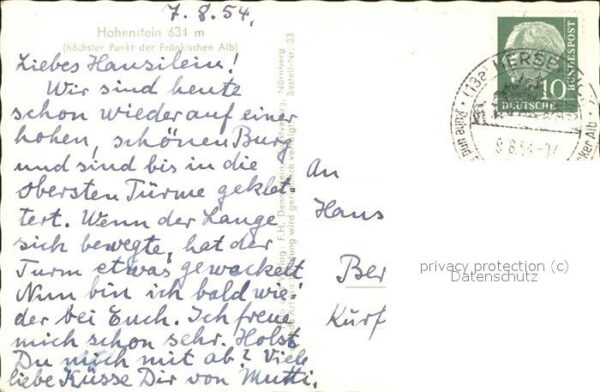 7.8.54,
Hohenstein 634 m
(höchster Punkt der Fränkischen Alb)
Liebes Hansilein!
Wir sind heute
schon wieder auf einer
hohen, schönen Burg
und sind bis in die
obersten Türme geklet-
tert. Wenn der Lange
sich bewegte, hat der
Turm etwas gewackelt
Nun bin ich bald wie-
der bei Euch. Ich freue
mich schon sehr. Holst
Du mich mit ab? Viele
liebe Küsse Dir von Mutti.
Nürnberg
Bestell-Nr. 33
An
Hans
Ber
Kurf
10
DEUTSCHE
BUNDESPOST
(13a) HERSB
8.8.54
privacy protection (c)
Datenschutz